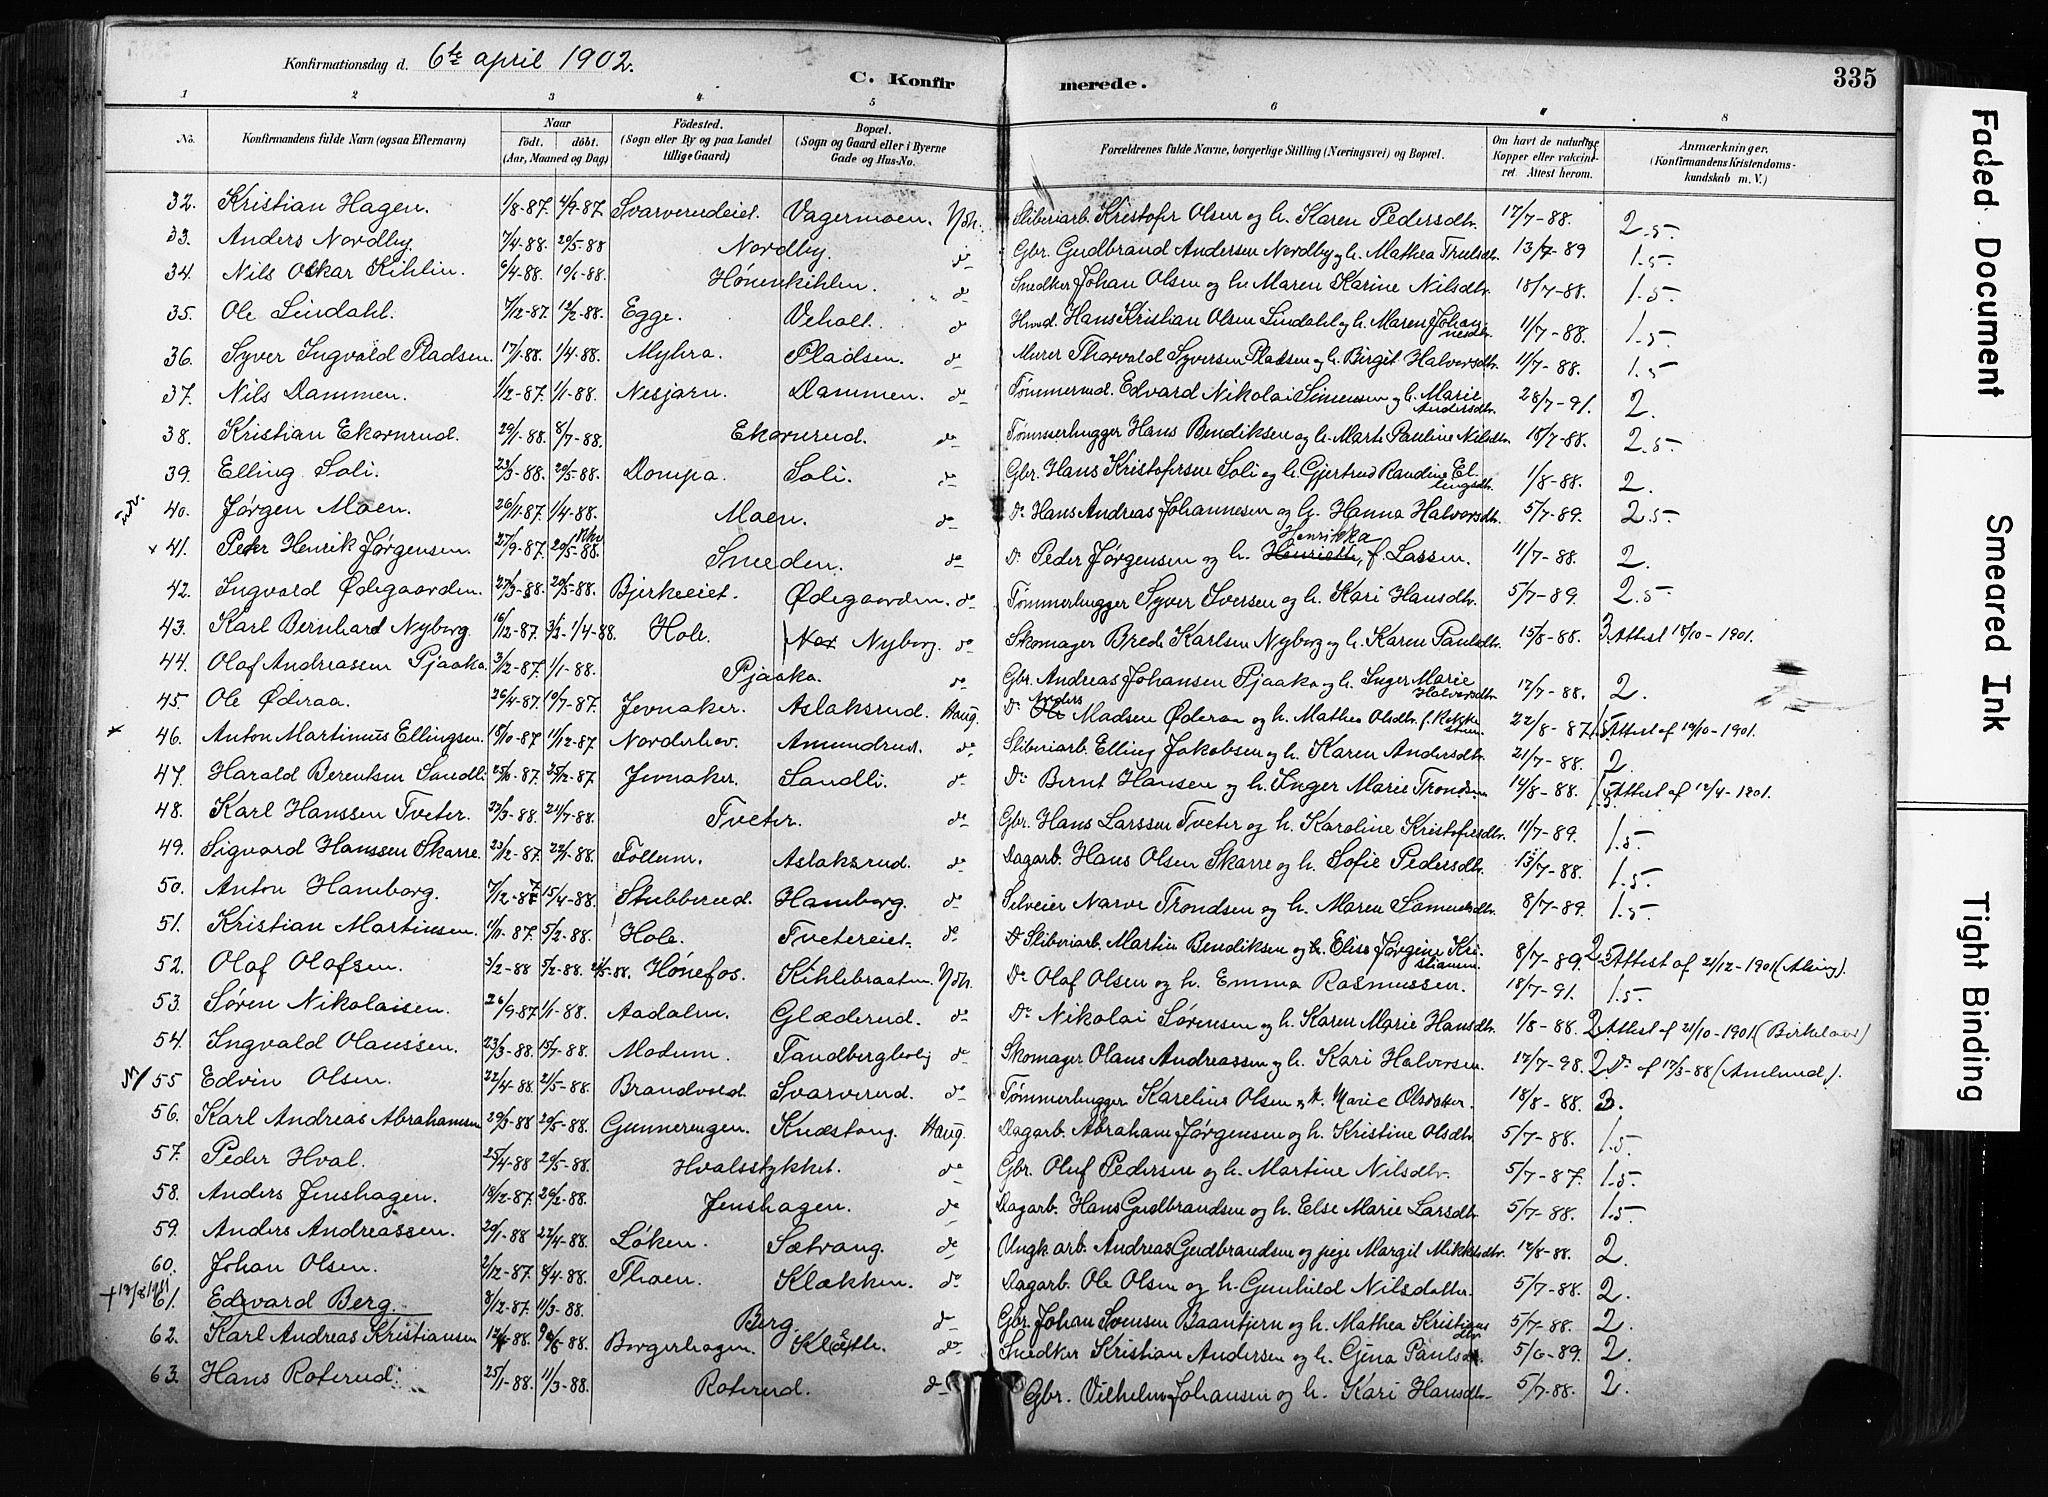 Konfirmationsdag d. 6te april 1902.
C. Konfirmerede.
335
1 2 3 4 5 6 8
No. Konfirmandens fulde Navn (ogsaa Efternavn) Naar født. døbt. (Aar, Maaned og Dag) Fødested. (Sogn eller By og paa Landet tillige Gaard) Bopæl. (Sogn og Gaard eller i Byerne Gade og Hus-No. Forældrenes fulde Navne, borgerlige Stilling (Næringsvei) og Bopæl. Om havt de naturlige Kopper eller vakcineret. Attest herom. Anmærkninger. (Konfirmandens Kristendomskundskab m. V.)
32. Kristian Hagen. 1/8-87. 4/9-87 Svarverudeiet. Vagermoen. Ndh. Sliberiarb. Kristofer Olsen og h. Karen Pedersdtr. 17/7-88. 2.5.
33. Anders Nordby. 7/4-88. 20/5-88 Nordby. do Gbr. Gudbrand Andersen Nordby og h. Mathea Truelsdtr. 13/7-89 1.5.
34. Nils Oskar Kihlin. 6/4-88. Hønenkihlen. do Snedker Johan Olsen og h. Maren Karine Nilsdtr. 18/7-88. 1.5.
35. Ole Lindahl. 7/12-87. 12/2-88. Egge. Veholt. do Hmd. Hans Kristian Olsen Lindahl og h. Maren Johannesdtr. 11/7-88. 1.5.
36. Syver Ingvald Pladsen. 17/1-88. 1/4-88. Myhra. Pladsen. do Murer Thorvald Syversen Pladsen og h. Birgit Halvorsdtr. 11/7-88. 1.5
37. Nils Dammen. 1/12-87. 1/1-88. Nesjarn. Dammen. do Tømmermd. Edvard Nikolai Simensen og h. Marie Andersdtr. 28/7-91. 2.
38. Kristian Ekornrud. 29/1-88. 8/7-88. Ekornrud. do Tømmerhugger Hans Bendiksen og h. Marte Pauline Nilsdtr. 18/7-88. 2.5.
39. Elling Soli. 23/3-88. 20/5-88. Dompa. Soli. do Gbr. Hans Kristofersen Soli og h. Gjertrud Randine Ellingsdtr. 1/8-88. 2.
40. Jørgen Moen. 26/11-87. 1/4-88. Moen. do Do Hans Andreas Johannesen og h. Hanna Halvorsdtr. 5/7-89. 2.5.
x 41. Peder Henrik Jørgensen. 27/9-87. 20/5-88. Smeden. do Do Peder Jørgensen og h. Henriette Henrikka f. Lassen. 11/7-88. 2.
42. Ingvald Ødegaarden. 27/3-88. 20/5-88. Bjerkeeiet. Ødegaarden. do Tømmerhugger Syver Iversen og h. Kari Hansdtr. 5/7-89. 2.5
43. Karl Bernhard Nyborg. 16/12-87. 3/2-1/4-88. Hole. Nor Nyborg. do Skomager Brede Karlsen Nyborg og h. Karen Paulsdtr. 15/8-88. 3. Attest 18/10-1901.
44. Olaf Andreassen Pjaaka. 3/12-87. 1/1-88. Pjaaka. do Gbr. Andreas Johansen Pjaaka og h. Inger Marie Halvorsdtr. 17/7-88. 2.
45. Ole Øderaa. 26/4-87. 10/7-87. Jevnaker. Aslaksrud. Haug. Do Ole Anders Madsen Øderaa og h. Mathea Olsdtr. 22/8-87. 1.5 Attest of 19/10-1901.
46. Anton Martinus Ellingsen. 18/10-87 11/12-87 Norderhov. Amundrud. do Sliberiarb. Elling Jakobsen og h. Karen Andersdtr. 21/7-88. 2.
47. Harald Berentsen Sandli. 25/12-87 Jevnaker. Sandli. do Do Bernt Hansen og h. Inger Marie Trondsen 14/8-88. 1.5. Attest of 12/4-1901.
48. Karl Hanssen Tveter. 27/3-88. 24/7-88. Tveter. do Gbr. Hans Larssen Tveter og h. Karoline Kristofersdtr. 11/7-89. 1.5.
49. Sigvard Hanssen Skarre. 23/12-87. 22/1-88. Follum. Aslaksrud. do Dagarb. Hans Olsen Skarre og h. Sofie Pedersdtr. 13/7-88. 1.5.
50. Anton Hamborg. 7/12-87 15/4-88. Stubberud. Hamborg. do Selveier Narve Trondsen og h. Maren Samuelsdtr. 8/7-89. 1.5.
51. Kristian Martinsen. 11/11-87. 5/2-88. Hole. Tvetereiet. do Do Sliberiarb. Martin Bendiksen og h. Elise Jørgine Kristiansen. 8/7-89. 2.5 Attest of 21/12-1901
52. Olaf Olafsen. 3/2-88 5/2-88. Hønefos. Kihlebraaten. Ndh. Do Olaf Olsen og h. Emma Rasmussen. 18/7-91. 1.5.
53. Søren Nikolaisen. 26/9-87 1/1-88. Aadalen. Glæderud. do Do Nikolai Sørensen og h. Karen Marie Hansdtr. 1/8-88. 2. Attest of 21/10-1901
54. Ingvald Olaussen. 23/3-88. 15/7-88. Modum. Tandbergbolig do Skomager Olaus Andreassen og h. Kari Halvorsen. 17/7-98. 2. Do of 17/3-88
55 Edvin Olsen. 22/4-88. 21/5-88. Brandvold. Svarverud. do Tømmerhugger Karelius Olsen og h. Marie Olsdatter. 18/8-88. 3.
56. Karl Andreas Abrahamsen 29/3-88. 20/5-88. Gunnerengen. Knæstang. Haug. Dagarb. Abraham Jørgensen og h. Kristine Olsdtr. 5/7-88. 1.5.
57. Peder Hval. 25/4-88 20/5-88. Hvalsstykket. do Gbr. Oluf Pedersen og h. Martine Nilsdtr. 5/7-87. 1.5.
58. Anders Jenshagen. 18/12-87. 26/2-88. Jenshagen. do Dagarb. Hans Gudbrandsen og h. Else Marie Larsdtr. 5/7-88. 1.5.
59. Anders Andreassen. 20/1-88 22/4-88. Løken. Sætrang. do Ungk. arb. Andreas Gudbrandsen og pige Margit Mikkelsdtr. 12/8-88. 2.
60. Johan Olsen. 2/12-87. 8/4-88. Thoen. Klækken. do Dagarb. Ole Olsen og h. Gunhild Nilsdatter. 5/7-88. 2.
61. Edevard Berg. 8/12-87. 11/3-88. Berg. do Gbr. Johan Svensen Baantjern og h. Mathea Kristiansdtr. 5/7-88. 2.
62. Karl Andreas Kristiansen Borgerhagen. do Snedker Kristian Andersen og h. Gina Paulsdtr. 5/6-89. 2.
63. Hans Roterud. 25/1-88. 11/3-88. Roterud. do Gbr. Vilhelm Johansen og h. Kari Hansdtr. 5/7-88. 2.
Faded Document
Smeared Ink
Tight Binding